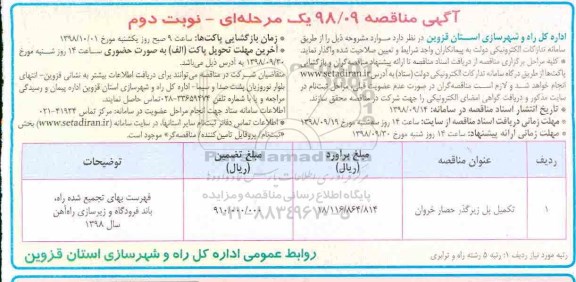 آگهی مناقصه ۹۸/۰۹ یک مرحله‌ای - نوبت دوم
اداره کل راه و شهرسازی استان قزوین در نظر دارد موارد مشروحه ذیل را از طریق
سامانه تدارکات الکترونیکی دولت به پیمانکاران واجد شرایط و تعیین صلاحیت شده واگذار نماید.
* کلیه مراحل برگزاری مناقصه از دریافت اسناد مناقصه تا ارائه پیشنهاد مناقصه‌گران و بازگشایی
پاکت‌ها از طریق درگاه سامانه تدارکات الکترونیکی دولت (ستاد) به آدرس www.setadiran.ir
انجام خواهد شد و لازم است مناقصه‌گران در صورت عدم عضویت قبلی مراحل ثبت‌نام در
سایت مذکور و دریافت گواهی امضای الکترونیکی را جهت شرکت در مناقصه محقق سازند.
* تاریخ انتشار اسناد مناقصه در سامانه: ۱۳۹۸/۰۹/۱۴
* مهلت زمانی دریافت اسناد مناقصه از سایت: ساعت ۱۴ روز سه شنبه مورخ ۱۳۹۸/۰۹/۱۹
* مهلت زمانی ارائه پیشنهاد: ساعت ۱۴ روز شنبه مورخ ۱۳۹۸/۰۹/۳۰
* زمان بازگشایی پاکت‌ها: ساعت ۹ صبح روز یکشنبه مورخ ۱۳۹۸/۱۰/۰۱
* آخرین مهلت تحویل پاکت (الف) به صورت حضوری ساعت ۱۴ روز شنبه مورخ
۱۳۹۸/۰۹/۳۰ به آدرس ذیل می‌باشد.
متقاضیان شرکت در مناقصه می‌توانند برای دریافت اطلاعات بیشتر به نشانی قزوین- انتهای
بلوار نوروزیان پشت صدا و سیما - اداره کل راه و شهرسازی استان قزوین اداره پیمان و رسیدگی
مراجعه و یا با شماره تلفن ۳۳۶۵۹۴۷۴-۰۲۸ تماس حاصل نمایند.
* اطلاعات تماس سامانه ستاد جهت انجام مراحل عضویت در سامانه: مرکز تماس ۴۱۹۳۴-۰۲۱
* اطلاعات تماس دفاتر ثبت‌نام سایر استانها، در سایت سامانه (www.setadiran.ir) بخش
«ثبت‌نام/پروفایل تامین کننده/ مناقصه‌گر» موجود است.
ردیف عنوان مناقصه مبلغ برآورد (ریال) مبلغ تضمین (ریال) توضیحات
۱ تکمیل پل زیرگذر حصار خروان ۱۸/۱۱۶/۸۶۴/۸۱۴ فهرست بهای تجمیع شده راه،
باند فرودگاه و زیرسازی راه‌آهن
سال ۱۳۹۸
پایگاه اطلاع رسانی مناقصه و مزایده
رتبه مورد نیاز ردیف ۱: رتبه ۵ رشته راه و ترابری
روابط عمومی اداره کل راه و شهرسازی استان قزوین